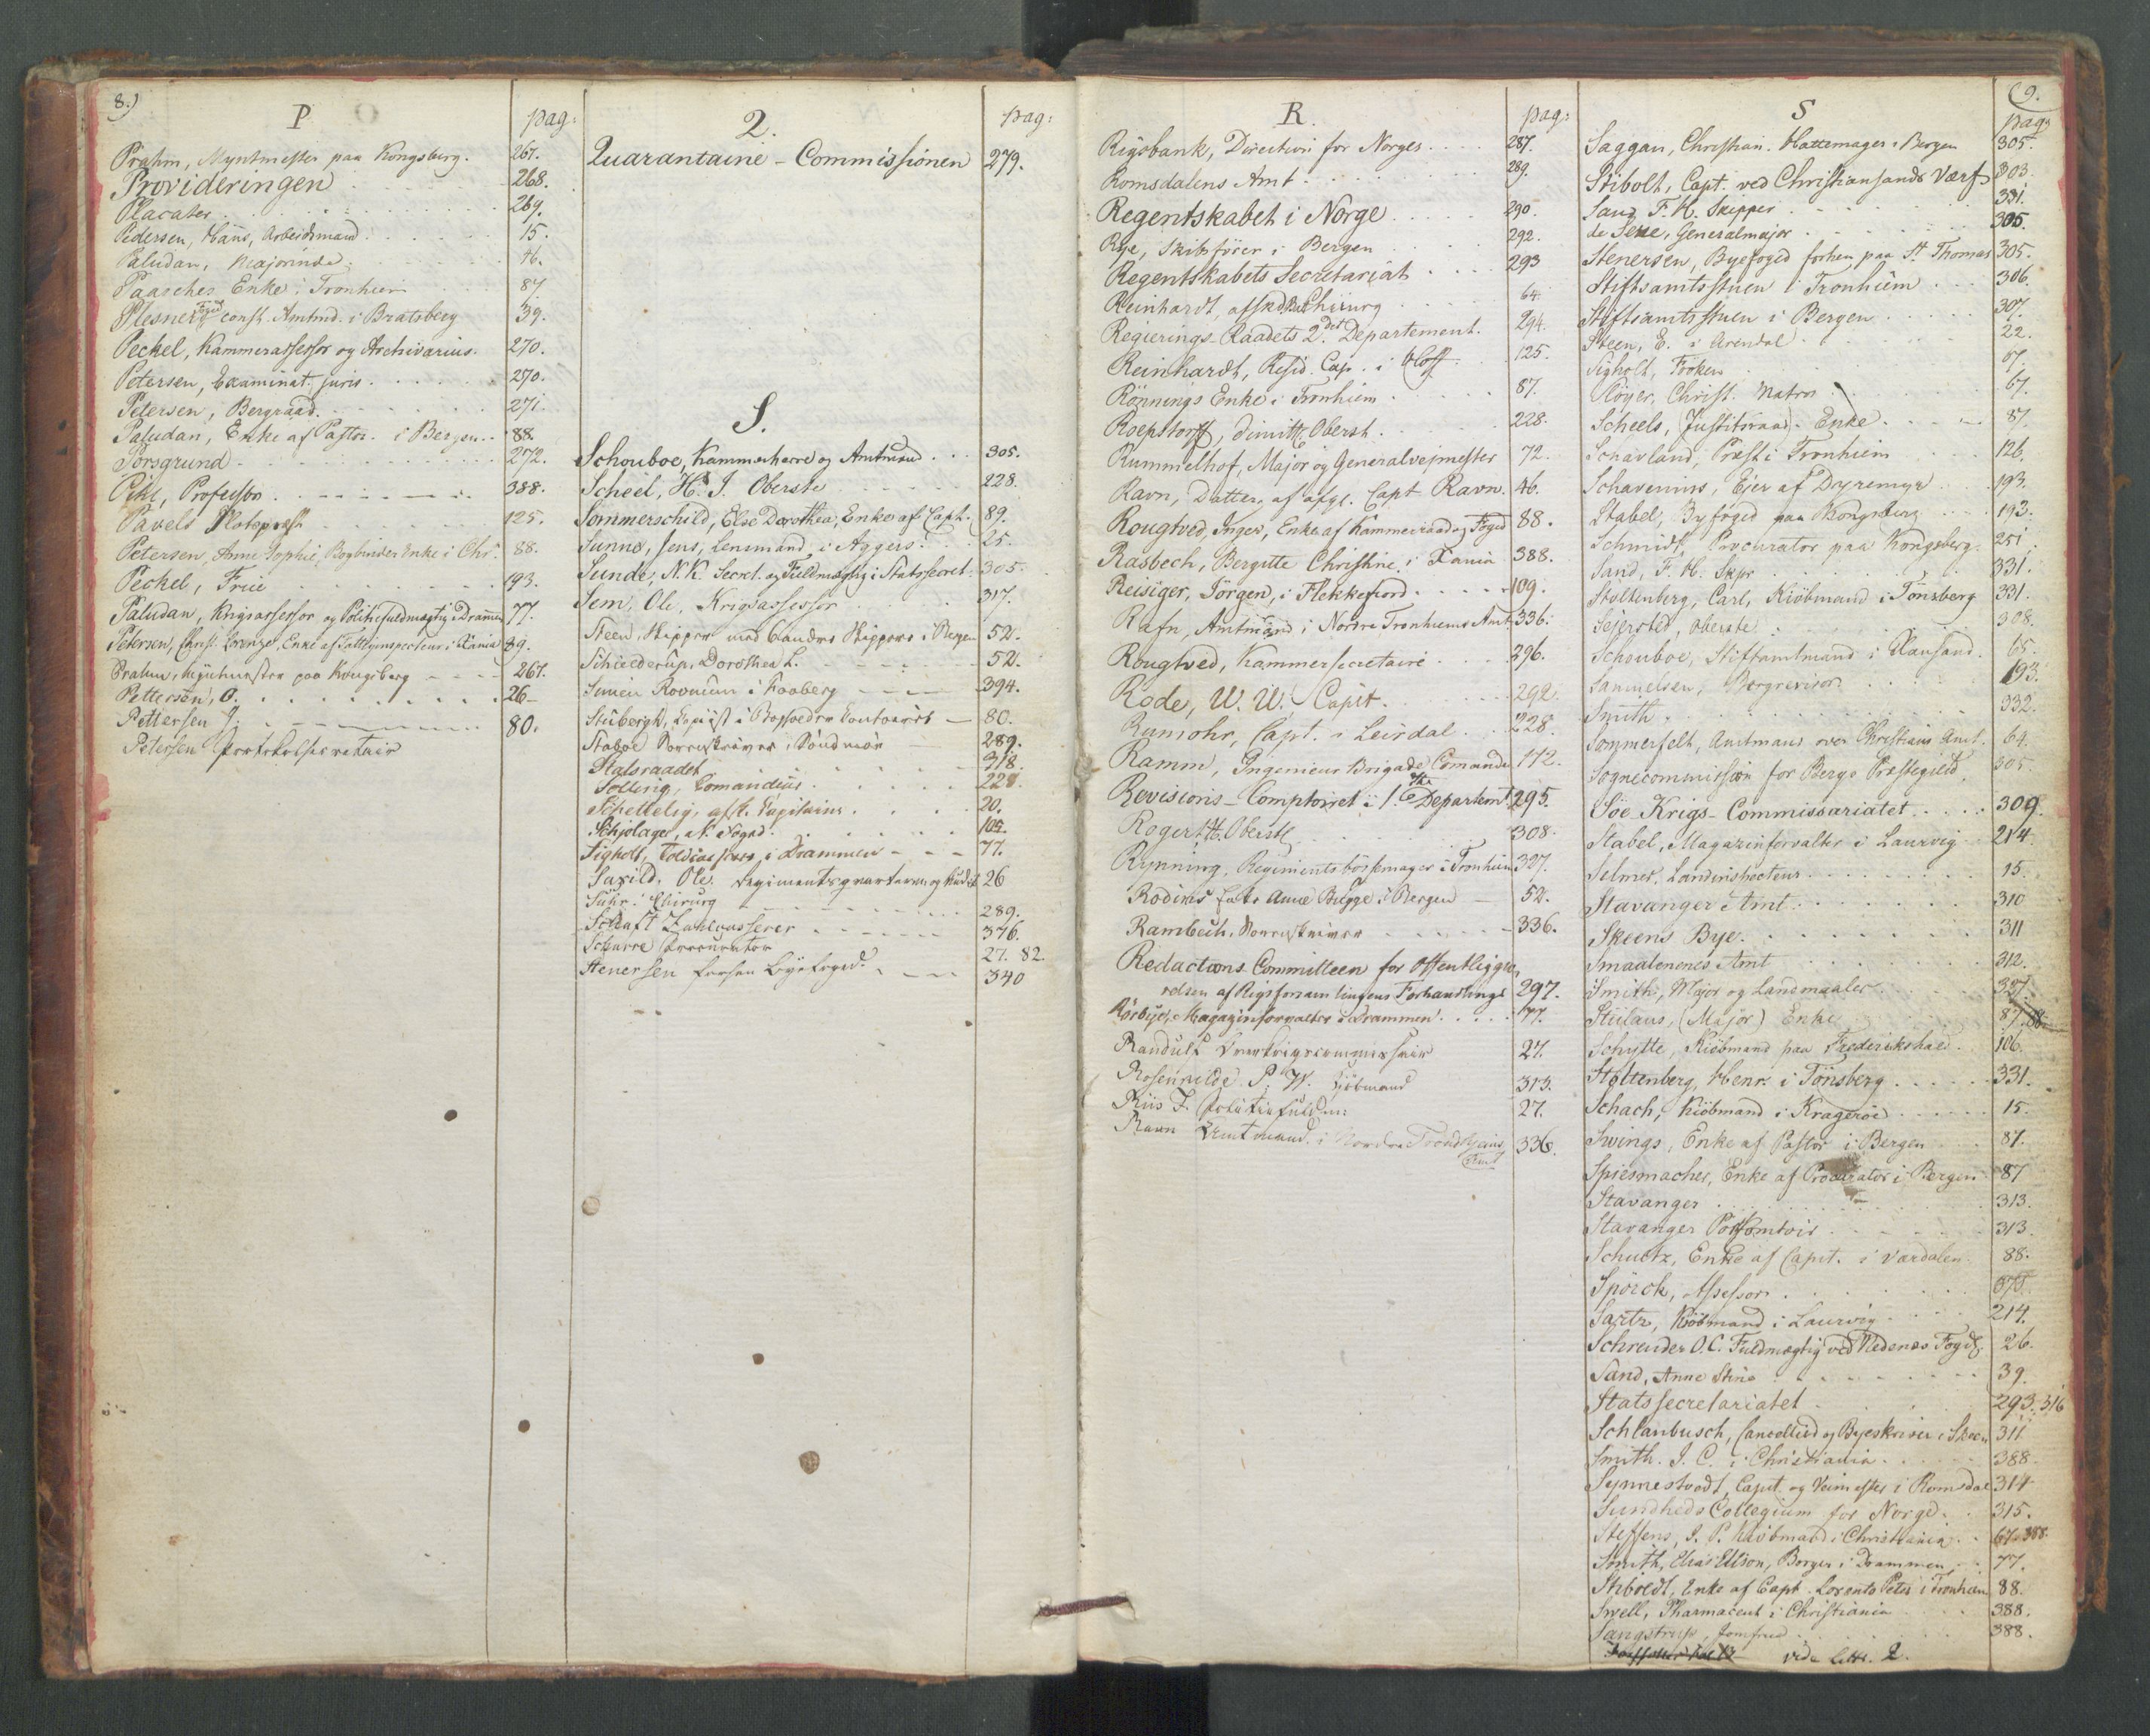 8.)
P
pag:
Prahm, Myntmester paa Kongsberg. 267.
Provideringen 268.
Placater 269.
Pedersen, Hans, Arbeidsmand 15.
Paludan, Majorinde 46.
Paasches Enke i Tronhiem 87
Plesner, Foged const. Amtmd. i Bratsberg 39.
Peckel, Kammerassessor og Archivarius. 270.
Petersen, Examinat. juris 270.
Petersen, Bergraad. 271.
Paludan, Enke af Pastor i Bergen 88.
Porsgrund 272.
Pihl, Professor 388.
Pavels Slotspræst 125.
Petersen, Anne Sophie, Bogbinder Enke i Chr. 88.
Peckel, Frue 193.
Paludan, Krigsassessor og Politiefuldmægtig i Drammen 77.
Petersen, Christ. Lorenze, Enke af Tattinspecteur i Xania 89.
Prahm, Myntmester paa Kongsberg 267.
Pettersen, O. 26
Pettersen J. 80.
Petersen Protokolsecretair
2.
pag:
Quarantaine-Commissionen 279.
S.
Schouboe, Kammerherre og Amtmand 305.
Scheel, H. J. Oberste 228.
Sommerschild, Else Dorothea, Enke af Capt. 89.
Sunne, Jens, Lensmand i Aggers 25.
Sunde, N. K. Secret. og Fuldmægtig i Statssecret. 305.
Sem, Ole, Krigsassessor 317.
Steen, Skipper med andre Skippere i Bergen 52.
Schielderup, Dorothea L. 52.
394.
80.
Sorenskriver, Söndmör 289.
Statsraadet 318.
Solling, Comandeur 228.
20.
104.
Sigholt, i Drammen 77.
Saxild, Ole, 26
Suhr. Chirurg 289.
376.
Scharre Procurator 27. 82.
Stenersen forhen Byefoged. 340
R.
pag:
Rigsbank, Direction for Norges 287.
Romsdalens Amt 289.
Regentskabet i Norge 290.
Rye, Skibsfører i Bergen 292.
Regentskabets Secretariat 293
Reinhardt, afskd. Chirurg 64.
Regierings-Raadets 2det Departement. 294.
Reinhardt, Resid. Cap. i 125.
Rönnings Enke i Tronhiem 87.
Roepstorff, dimitt. Oberst 228.
Rummelhof, Major og Generalvejmester 72.
Ravn, Datter af afg. Capt Ravn. 46.
Rougtved, Inger, Enke af Kammeraad og Foged 88.
Rasbech, Bergitte Christine, i Xania 388.
Reisiger, Jörgen, i Flekkefiord 109.
Rafn, Amtmand i Nordre Tronhiems Amt 336.
Rougtved, Kammersecretaire 296.
Rode, W. W. Capit. 292.
Rumohr, Capt. i Leirdal 228.
Ramm, Ingenieur Brigade Comande 112.
Revisions-Comptoiret i 1ste Departemt. 295.
Rogert H. Oberstl 308.
Rynning, Regimentsbössemager i Tronhiem 327.
Anne Bugge i Bergen 52.
Rambech, Sorenskriver 336.
Redactions-Committeen for Offentliggiø-
relsen af Rigsforsamlingens Forhandlinger 297.
Rosbye, Magazinforvalter i Drammen 77.
Randulf Overkrigscommissair 27.
Rosenkilde P. W. Kjøbmand 313.
Riis J. Politiefuldm: 27.
Ravn Amtmand. i Nordre Trondhjems
Amt 336.
9.
S
pag:
Saggau, Christian. Hattemager i Bergen 305.
Stibolt, Capt. ved Christiansands Værf 303.
Sand, F. H. Skipper 331.
de Seue, Generalmajor 305.
Stenersen, Byefoged forhen paa St Thomas 305.
Stiftsamtsstuen i Tronhiem 306.
Stiftsamtsstuen i Bergen 307.
Steen, E. i Arendal 22.
Sigholt, Fröken 67.
Röyer, Christ. Matros 67.
Scheels, Justitsraad. Enke 87.
Schavland, Præst i Tronhiem 126.
Schavenius, Ejer af Dyremyr 193.
Stabel, Byfoged paa Kongsberg 193.
Schmidt, Procurator paa Kongsberg. 251.
Sand, F. H. Skpr 331.
Stoltenberg, Carl, Kiöbmand i Tönsberg 331.
Sejersted, Oberste 308.
Schouboe, Stiftamtmand i Xansand. 65.
Samuelsen, Bergrevisor 193.
Smith 332.
Sommerfelt, Amtmand over Christians Amt. 64.
Sognecommission for Bergs Præstegield. 305.
Söe Krigs-Commissariatet 309.
Stabel, Magazinforvalter i Laurvig 214.
Selmer, Landinspecteur 15.
Stavanger Amt 310
Skeens Bye 311
Smaalenenes Amt 312.
Smith, Major og Landmaaler 327.
Stülaus, (Major) Enke 87. 88.
Schytte, Kiöbmand paa Frederikshald. 106.
Stoltenberg, Henr. i Tönsberg 331.
Schach, Kiöbmand i Krageröe 15.
Swings, Enke af Pastor i Bergen 87.
Spiesmacher, Enke af Procurator i Bergen 87
Stavanger 313.
Stavanger Postcomtoir 313.
Schultz, Enke af Capit. i Værdalen 88.
Spörck, Assessor 375.
Sartz, Kiöbmand i Laurvig 214.
Schreuder O. C. Fuldmægtig ved Nedenes Fogdr. 26.
Sand, Anne Stine 39.
Statssecretariatet 293. 316
Schlanbusch, Cancellied og Byeskriver i Skeen 311
Smith. J. C. i Christiania 388.
Synnestvedt, Capit. og Veimester i Romsdal 314
Sundheds Collegium for Norge 315.
Steffens, J. P. Kiöbmand i Christiania 67. 388.
Smith, Elias Ellison, Borger i Drammen 77.
Stiboldt, Enke af Capt. Lorents Peter i Tronhiem 88.
Swell, Pharmaceut i Christiania 388.
Sangstrup, Jomfrue 388.
vide Littr. 2.